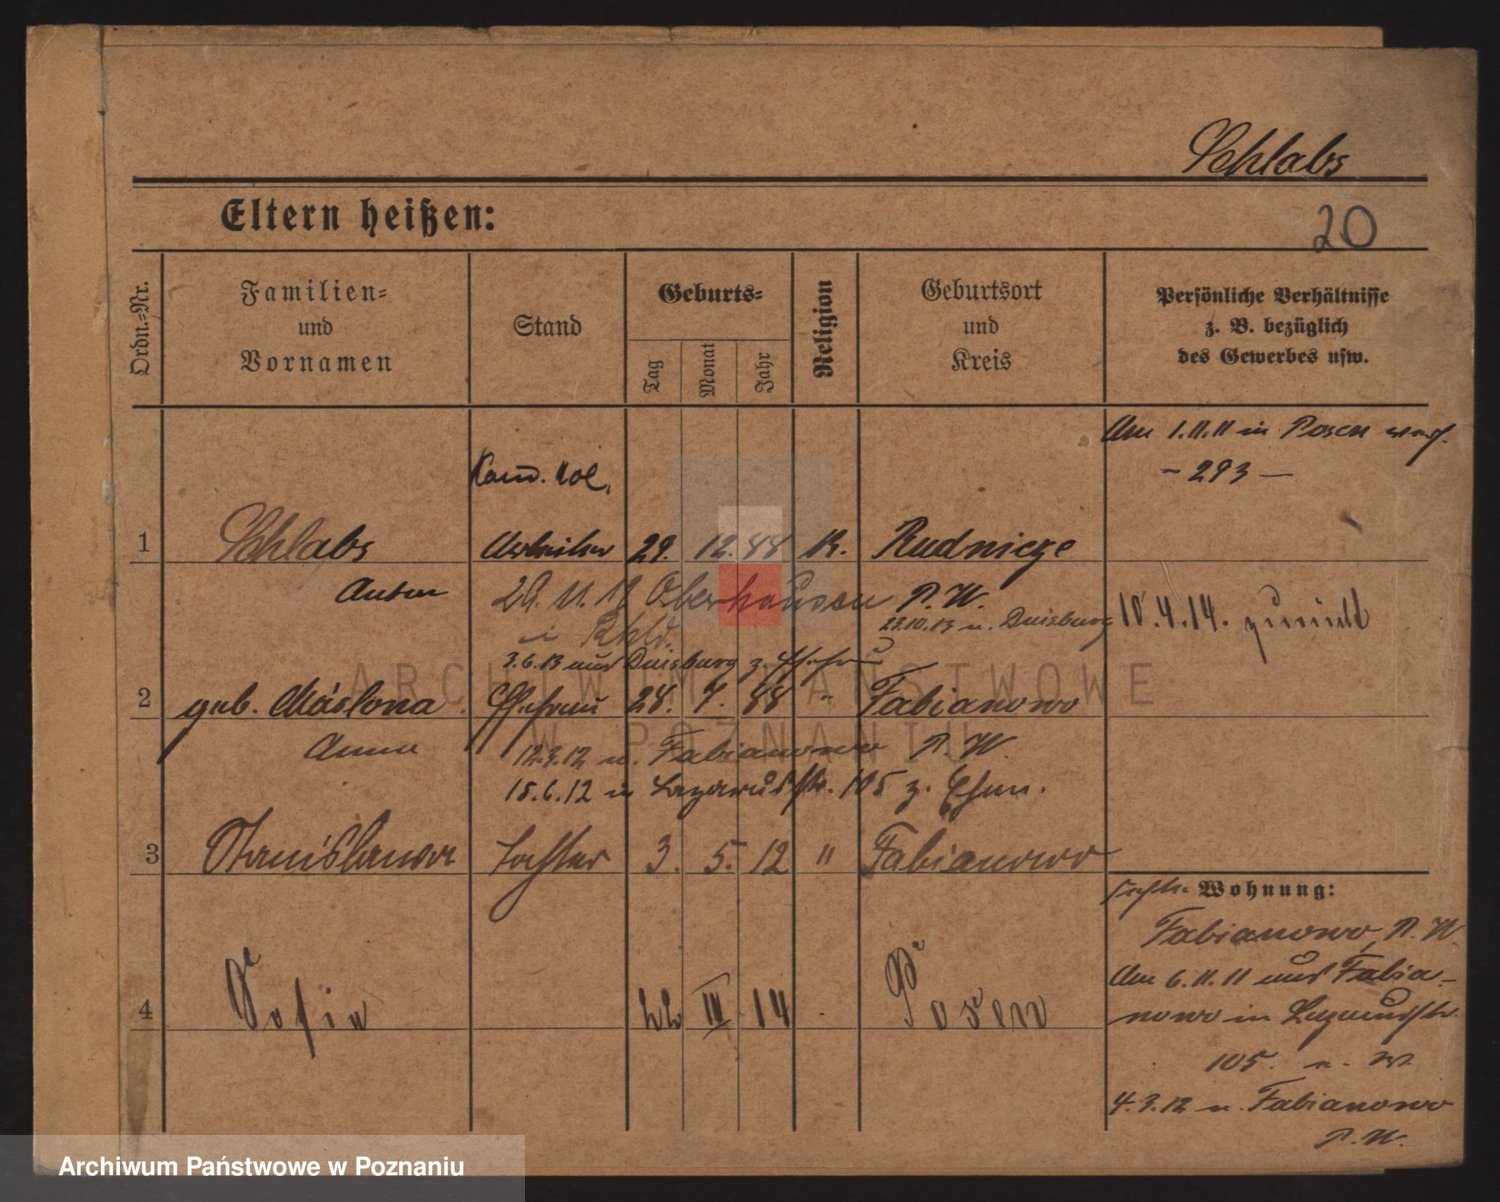 Schlabs
Eltern heißen:
20
Ordn.-Nr.
Familien-
und
Vornamen
Stand
Geburts-
Tag
Monat
Jahr
Religion
Geburtsort
und
Kreis
Persönliche Verhältnisse
z. B. bezüglich
des Gewerbes usw.
Am 1.11.11 in Posen
- 293 -
1 Schlabs Arbeiter 29. 12. 88 K. Rudnicze
Anton 29. 11. Oberhausen P. W.
i Rhld. 23.10.13 n. Duisburg 10.4.14. zurück
3.6.13 aus Duisburg z. Ehefrau
2 geb. Máslona Ehefrau 28. 7. 88 " Fabianowo
Anna 12.3.12 n. Fabianowo P. W.
15.6.12 in Lazarusstr. 105 z. Ehem.
3 Stanislawa Tochter 3. 5. 12 " Fabianowo
Wohnung:
Fabianowo, P. W.
Am 6.11.11 aus Fabia-
nowo in Lazarusstr.
105.
4 Sofia 22 IV 14 Posen
4.3.12 n. Fabianowo
P. W.
ARCHIWUM PAŃSTWOWE
W POZNANIU
Archiwum Państwowe w Poznaniu